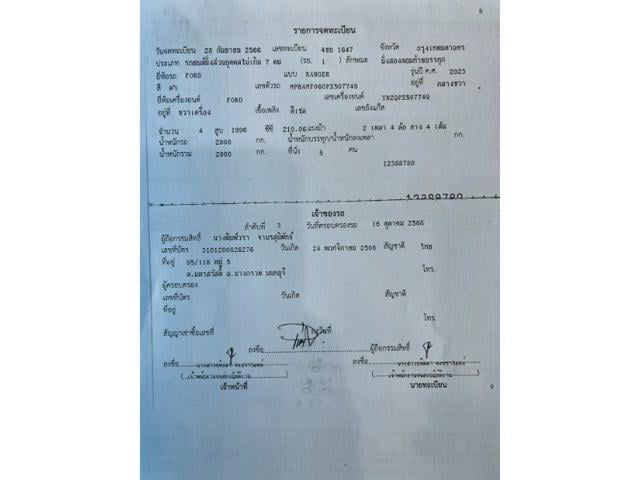 8
รายการจดทะเบียน
วันจดทะเบียน 28 กันยายน 2566 เลขทะเบียน 4ขย 1647 จังหวัด กรุงเทพมหานคร
ประเภท รถยนต์นั่งส่วนบุคคลไม่เกิน 7 คน (รย. 1 ) ลักษณะ นั่งสองตอนท้ายบรรทุก
ยี่ห้อรถ FORD แบบ RANGER รุ่นปี ค.ศ. 2023
สี ดำ เลขตัวรถ MPBAMF060PX507749 อยู่ที่ กลางขวา
ยี่ห้อเครื่องยนต์ FORD เลขเครื่องยนต์ TN2QPX507749
อยู่ที่ ขวาเครื่อง เชื้อเพลิง ดีเซล เลขถังแก๊ส
จำนวน 4 สูบ 1996 ซีซี 210.06 แรงม้า 2 เพลา 4 ล้อ ยาง 4 เส้น
น้ำหนักรถ 2800 กก. น้ำหนักบรรทุก/น้ำหนักลงเพลา กก.
น้ำหนักรวม 2800 กก. ที่นั่ง 5 คน
12388780
12388780
เจ้าของรถ
ลำดับที่ 3 วันที่ครอบครองรถ 16 ตุลาคม 2568
ผู้ถือกรรมสิทธิ์
เลขที่บัตร 3101200826276 วันเกิด 24 พฤศจิกายน 2508 สัญชาติ ไทย
ที่อยู่ 95/118 หมู่ 5
ต.มหาสวัสดิ์ อ.บางกรวย นนทบุรี โทร.
ผู้ครอบครอง
เลขที่บัตร วันเกิด สัญชาติ
ที่อยู่
โทร.
สัญญาเช่าซื้อเลขที่ ลงวันที่
ลงชื่อ ผู้ถือกรรมสิทธิ์
ลงชื่อ ลงชื่อ
(เจ้าพนักงานขนส่งปฏิบัติงาน) (เจ้าพนักงานขนส่งปฏิบัติงาน)
เจ้าหน้าที่ นายทะเบียน
9